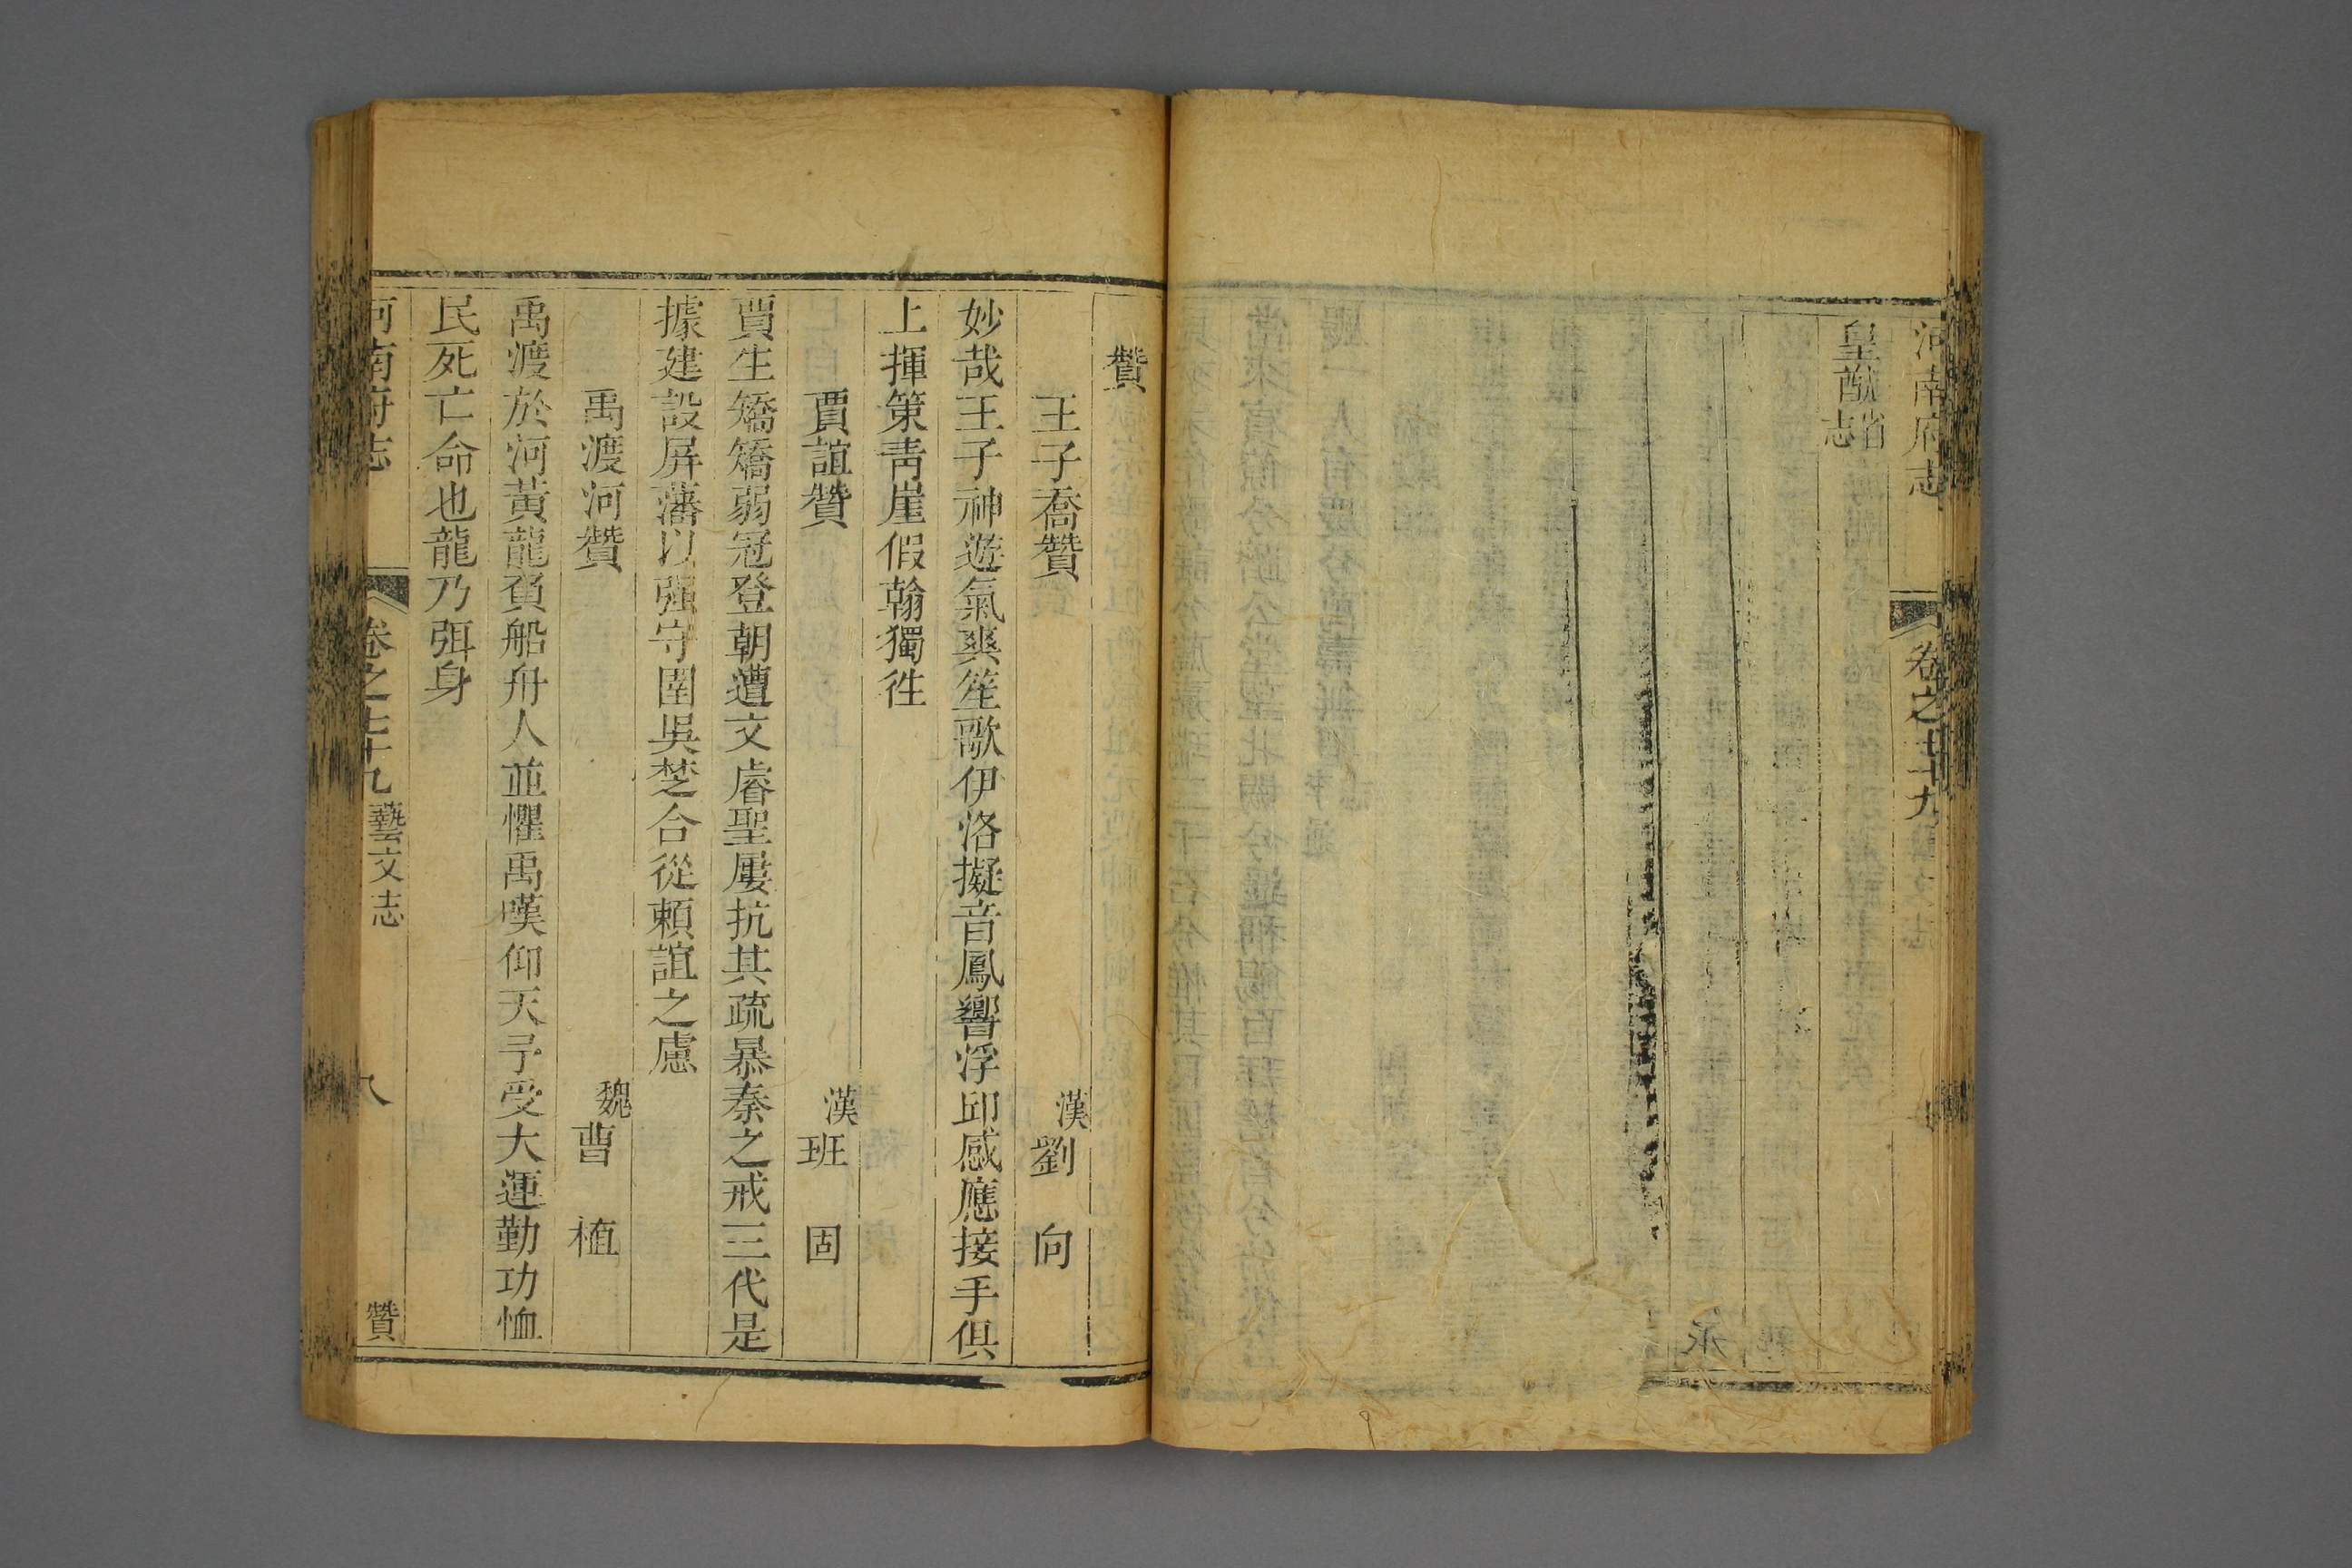 河南府志 卷之七十九
皇猷省志
贊
王子喬贊 漢劉向
妙哉王子神遊氣爽笙歌伊洛擬音鳳響浮邱感應接手俱
上揮策青崖假翰獨往
賈誼贊 漢班固
賈生矯矯弱冠登朝遭文睿聖屢抗其疏暴秦之戒三代是
據建設屏藩以强守圉吳楚合從賴誼之慮
禹渡河贊 魏曹植
禹渡於河黃龍負船舟人並懼禹嘆仰天予受大運勤功恤
民死亡命也龍乃弭身
河南府志 卷之七十九 藝文志 八 贊